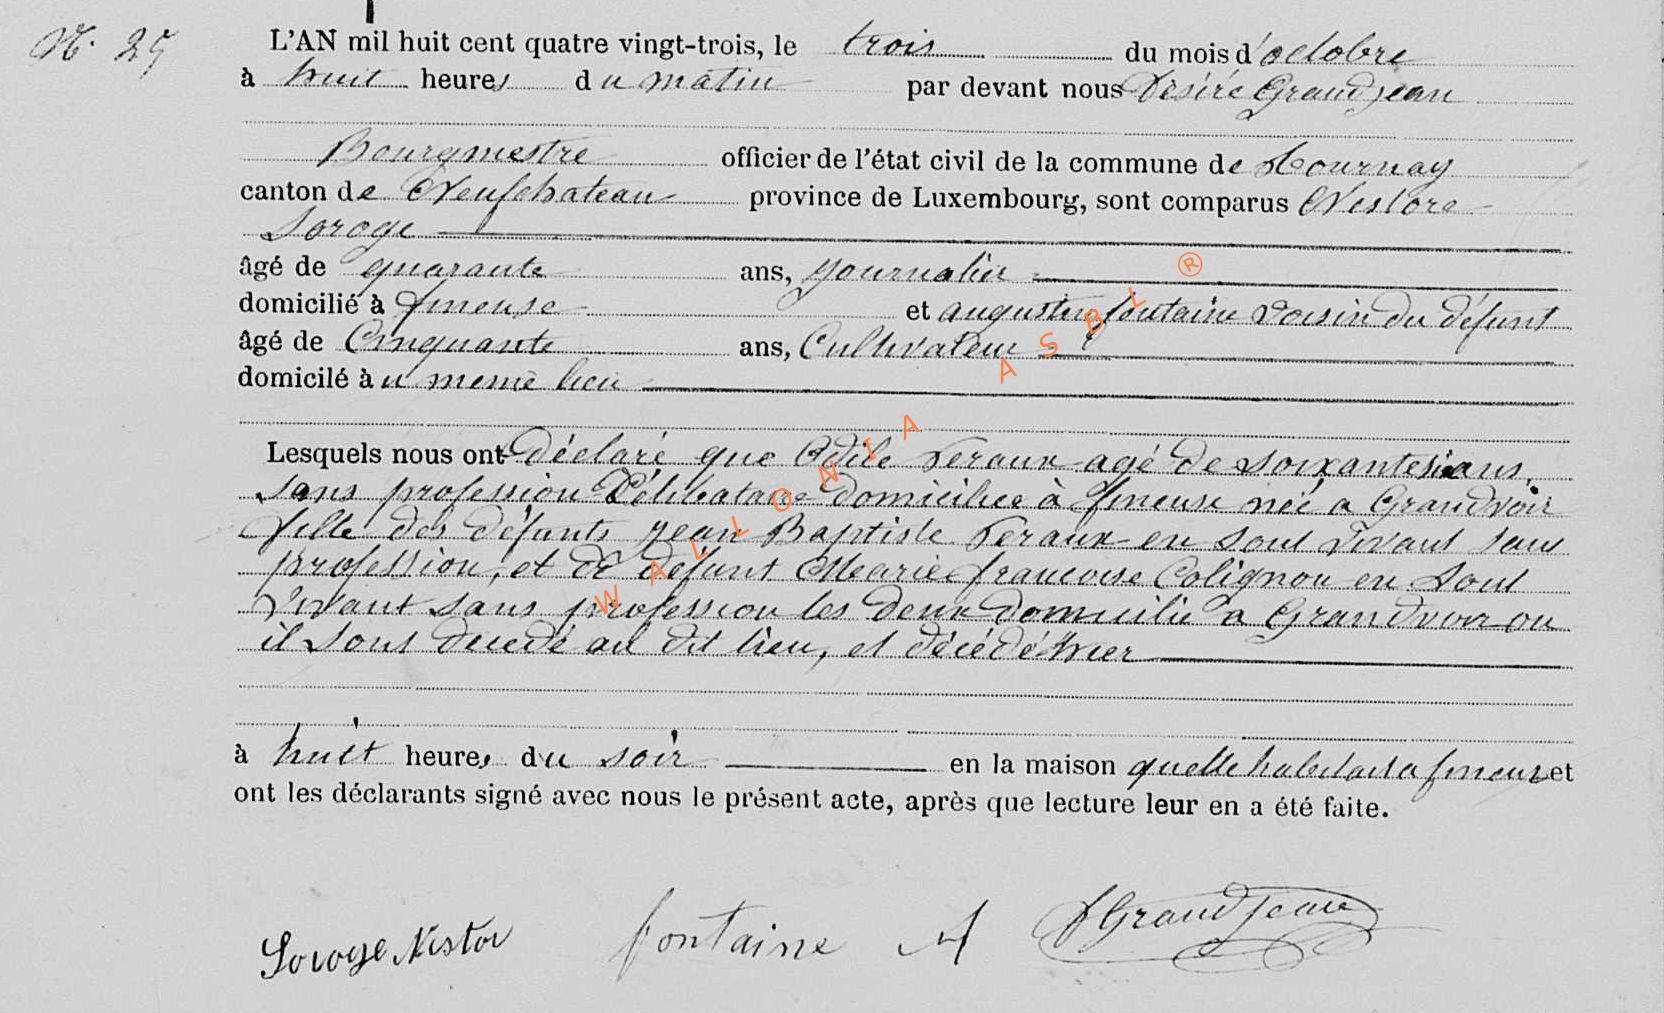 N. 25
L'AN mil huit cent quatre vingt-trois, le trois du mois d'octobre
à huit heures du matin par devant nous Désiré Grandjean
Bourgmestre officier de l'état civil de la commune de Tournay
canton de Neufchateau province de Luxembourg, sont comparus Nestore
Soroge
âgé de quarante ans, journalier
domicilié à Offineuse et auguste fontaine voisin du défunt
âgé de Cinquante ans, Cultivateur
domicilé à u meme lieu
Lesquels nous ont déclaré que Odile Feraux agé de soixantesix ans
sans profession Célibataire domiciliee à Offineuse née a Grandvoir
fille des défunts jean Baptiste Feraux en sont vivant sans
profession, et de défunt Marie francoise Colignon en sont
vivant sans profession les deux domicilié a Grandvoir ou
il sont decedé au dit lieu, et décédé hier
à huit heures du soir en la maison quelle habitait a offineuse et
ont les déclarants signé avec nous le présent acte, après que lecture leur en a été faite.
Soroge Nestor fontaine A DGrandjean
WALLONIA ASBL ®